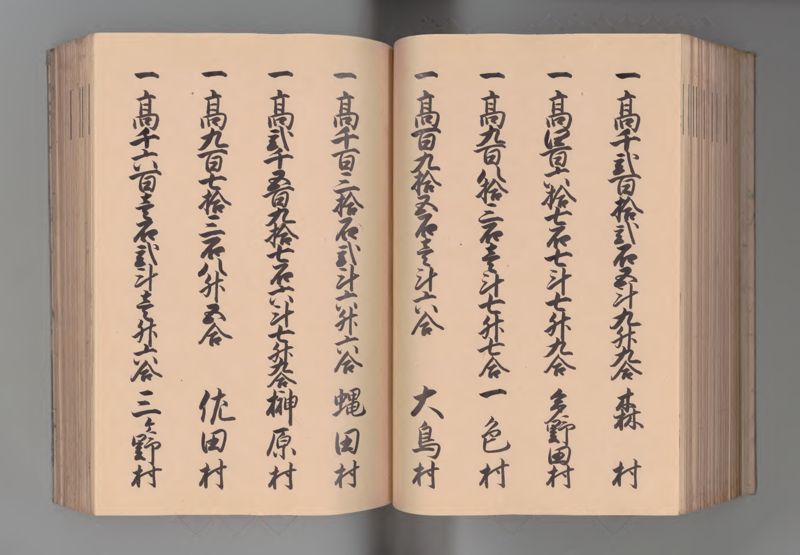 一高千弐百拾弐石五斗九升九合 森村
一高四百六拾七石七斗七升九合 多野田村
一高九百八拾二石壱斗七升七合 一色村
一高百九拾五石壱斗六合 大島村
一高千百二拾石弐斗六升六合 蝿田村
一高弐千五百九拾七石六斗七升九合 榊原村
一高九百七拾二石八升五合 佐田村
一高千六百壱石弐斗壱升六合 三ヶ野村